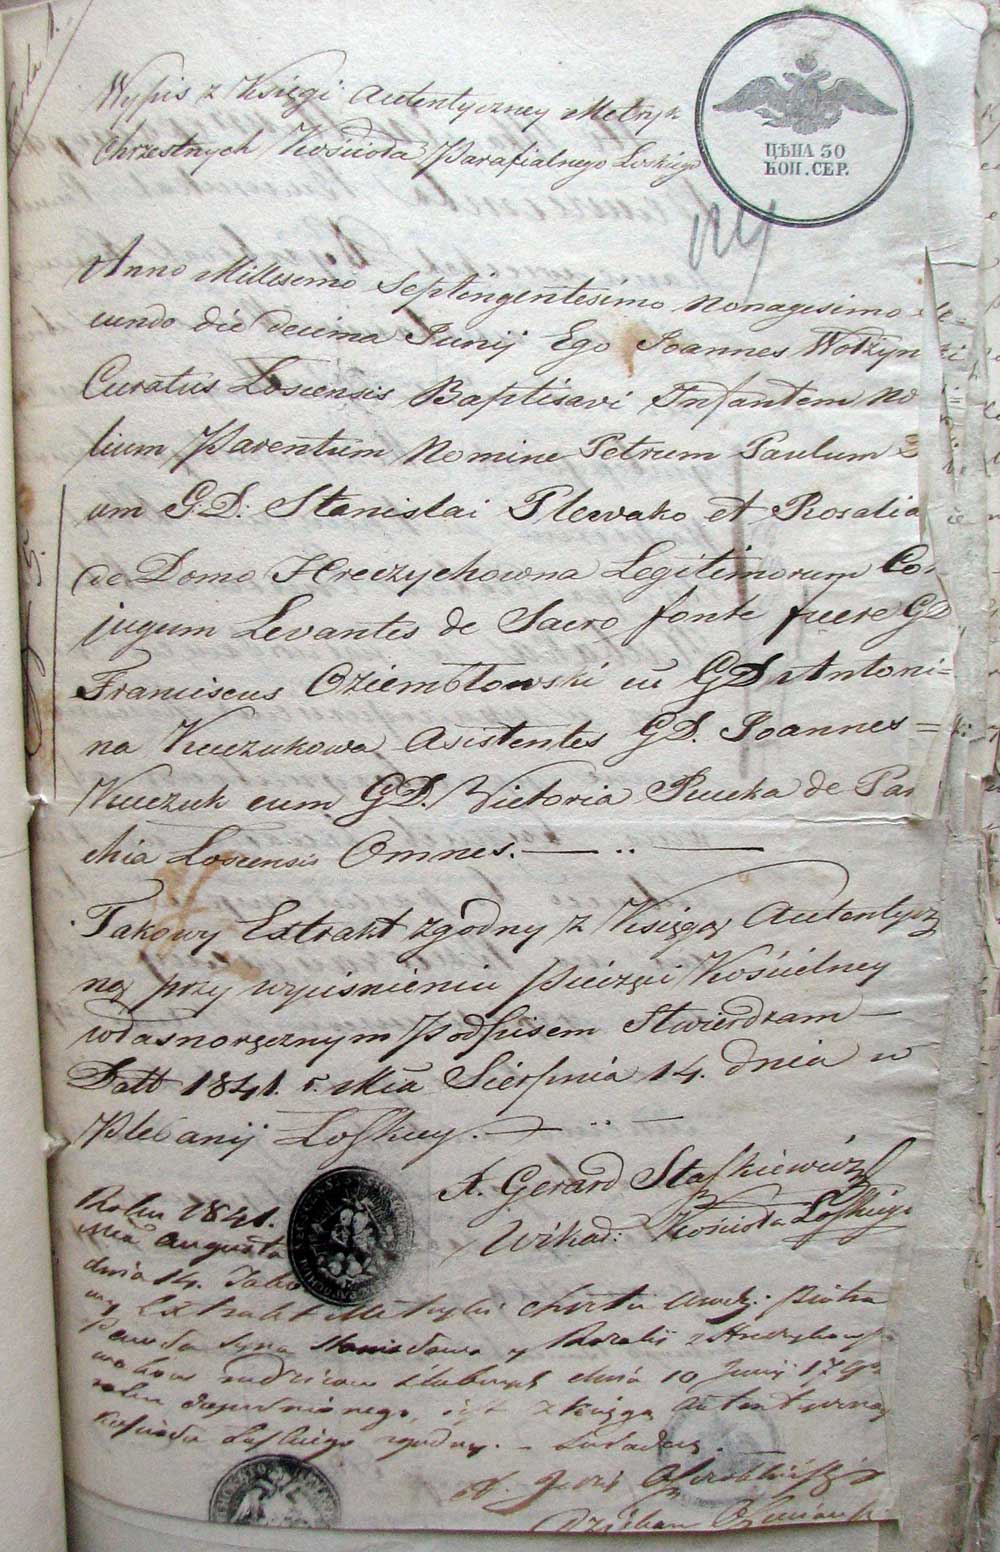 Wypis z Księgi Autentyczney Metryk
Chrzestnych Kościoła Parafialnego Loskiego
ЦѢНА 30
КОП. СЕР.
Anno Millesimo Septingentesimo Nonagesimo Se-
cundo die decima Junij Ego Joannes Wołżyn
Curatus Loscensis Baptisavi Infantem No
lium Parentum Nomine Petrum Paulum
um G.D. Stanislai Plewako et Rosalia
de Domo Hreczychowna Legitimorum Con
jugum Levantes de Sacro fonte fuere GD
Franciscus Oziembłowski cū GD Antoni=
na Kuczukowa Asistentes GD. Joannes=
Kuczuk cum GD. Victoria Rucka de Par
chia Loscensis Omnes.
Takowy Extrakt zgodny z Księgą Autentycz
ną przy wyciśnieniu Pieczęci Kościelney
własnoręcznym Podpisem Stwierdzam
Datt 1841. r. Mca Sierpnia 14. dnia w
Plebanij Loskiey.
X. Gerard Staskiewicz
Wikar: Kościoła Loskiego
Roku 1841.
Mca Augusta
dnia 14. Tako
wy Extrakt Metryki Chrztu Urodz: Piotra
Pawła Syna Stanisława y Rozalij z Hreczychow
roku zapisanego, jest z księgą Autentyczną
Kościoła Loskiego zgodny.